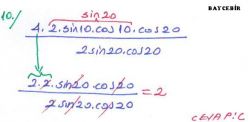 BAYCEBİR
sin20
10./ 4.2.sin10.cos10.cos20
2sin20.cos20
2.2.sin20.cos20 = 2
2sin20.cos20
CEVAP:C